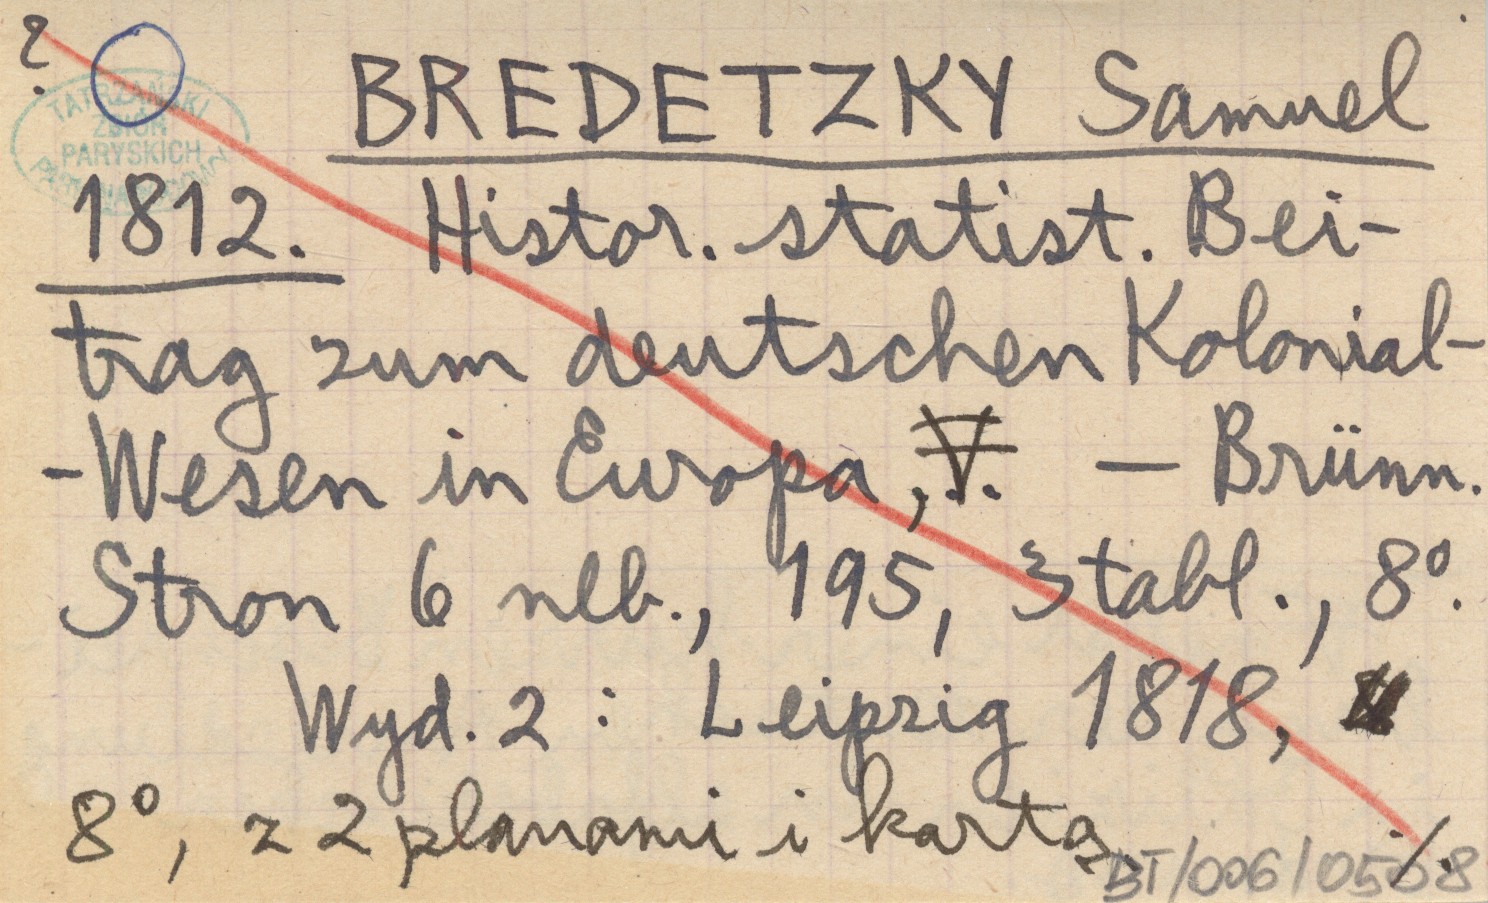 ?
TATRZAŃSKI
ZBIÓR
PARYSKICH
BREDETZKY Samuel
1812. Histor. statist. Bei-
trag zum deutschen Kolonial-
-Wesen in Europa, V. — Brünn.
Stron 6 nlb., 195, 3 tabl., 8°.
Wyd. 2: Leipzig 1818,
8°, z 2 planami i kartą
./.
BT/006/0508